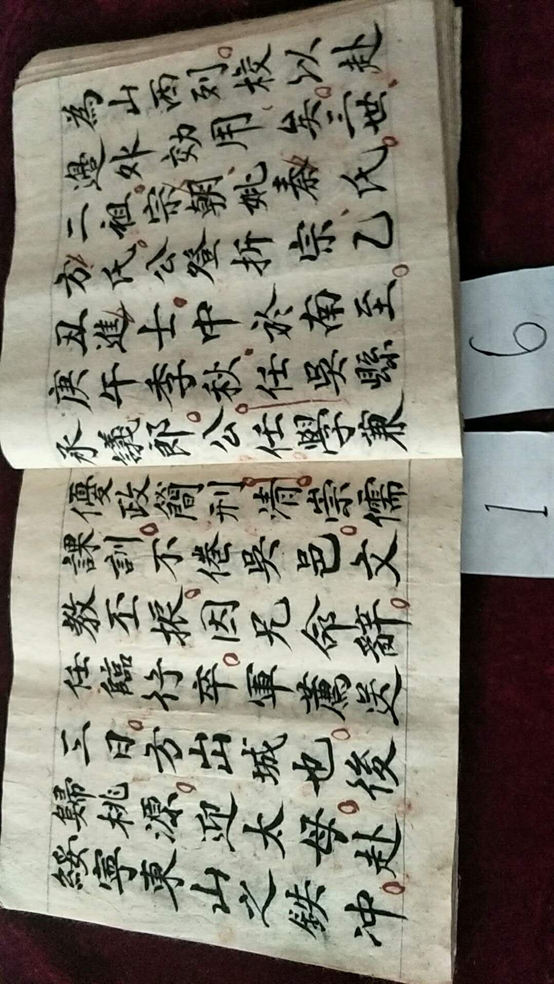 為山西列校以赴
邊外効用矣三世
二祖宗朝姚秦氏
方氏公登折宗乙
丑進士中於南至
庚午季秋任吳縣
承議郎公任學兼
優政簡刑清崇儒
課訓不倦吳邑文
教丕振因兄命辭
任臨行卒軍薦送
三日方出城也後
歸桃源迎太母赴
綏寧東山之鉄冲
6
1